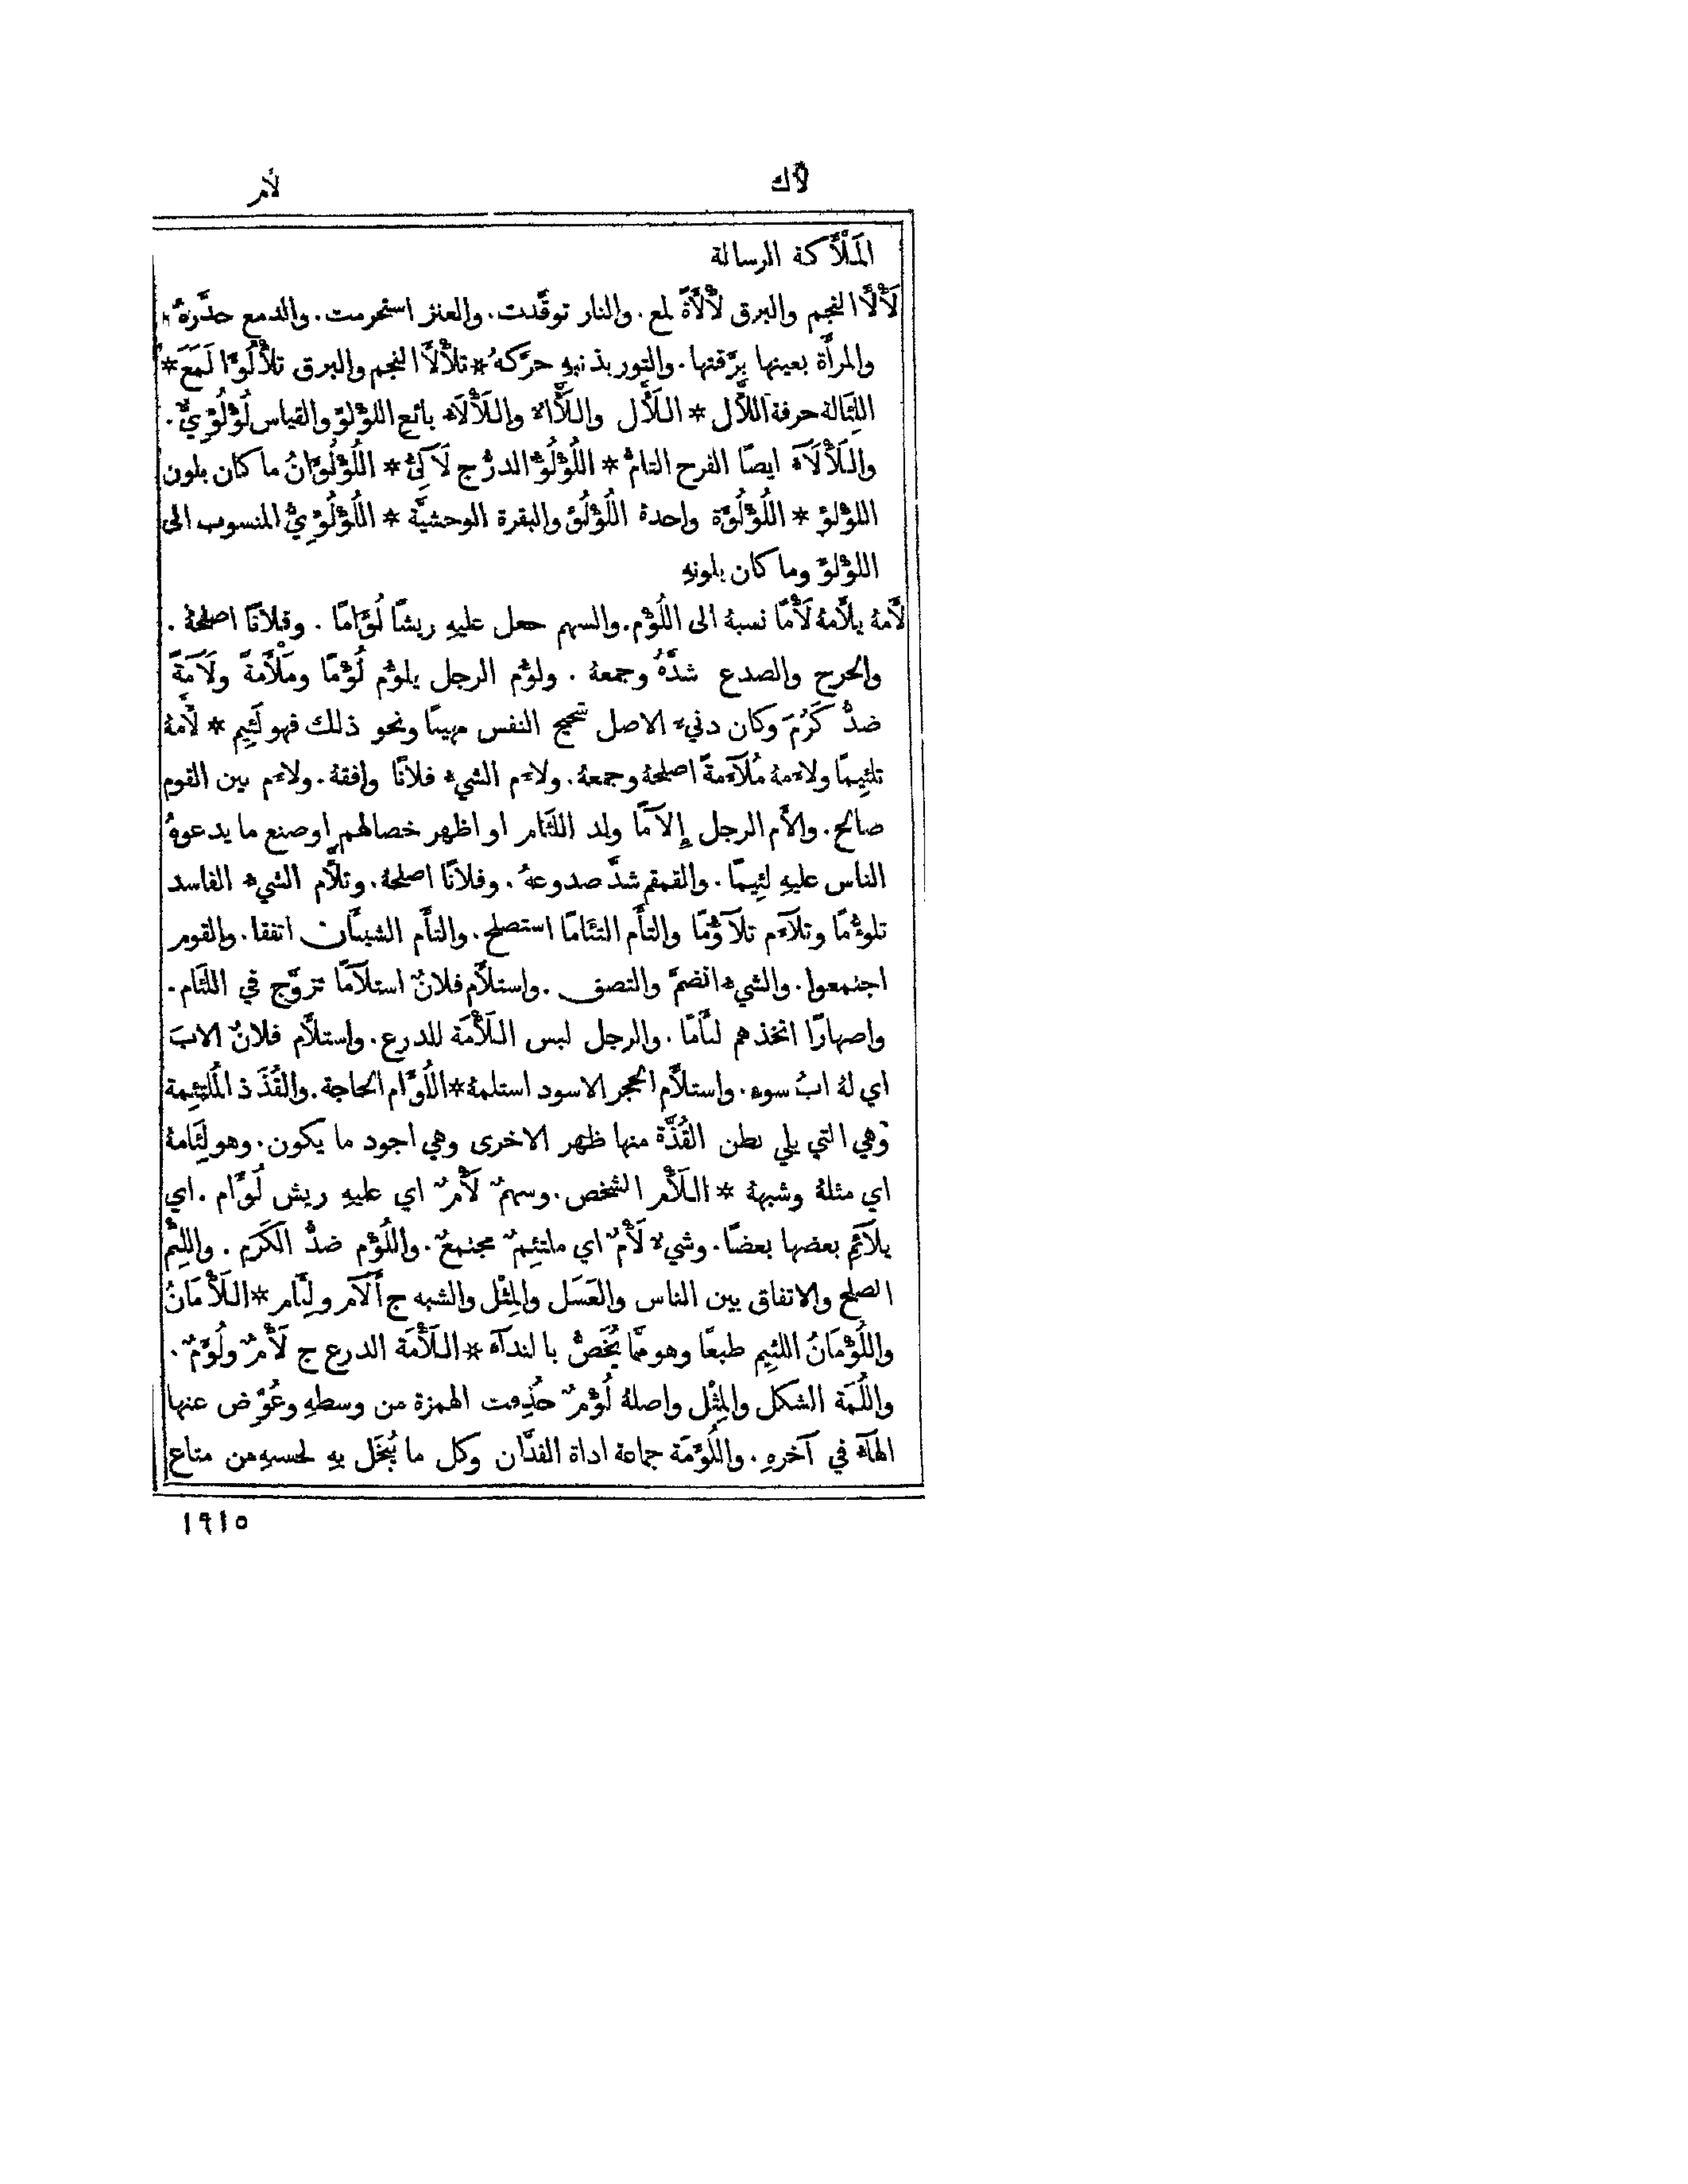 لأك
لأم
المَلْأَكة الرسالة
لَأْلَأَ النجم والبرق لَأْلَأَةً لمع. والنار توقَّدت. والعنز استحرمت. والدمع حدَّرهُ
والمرأَة بعينها برَّقتها. والثور بذنبهِ حرَّكهُ * تلأْلَأَ النجم والبرق تلأْلُؤًا لَمَعَ *
اللِّئَالة حرفة اللَّأَّال * اللَّأَّال واللَّأَّاءُ واللَّأْلَاءُ بائع اللؤْلؤ والقياس لُؤْلُؤِيٌّ.
واللَّأْلَآءُ ايضًا الفرح التامُّ * اللُّؤْلُؤُ الدرُّ ج لَآلِئُ * اللُّؤْلُؤَانُ ما كان بلون
اللؤْلؤِ * اللُّؤْلُؤَة واحدة اللُّؤْلُؤِ والبقرة الوحشيَّة * اللُّؤْلُؤِيُّ المنسوب الى
اللؤْلؤِ وما كان بلونهِ
لَأَمَهُ يلأَمهُ لَأْمًا نسبهُ الى اللُّؤْم. والسهم جعل عليهِ ريشًا لُؤَامًا. وفلانًا اصلحهُ.
والجرح والصدع شدَّهُ وجمعهُ. ولؤُم الرجل يلؤُم لُؤْمًا ومَلْأَمةً ولَآمَةً
ضدُّ كَرُمَ وكان دنيءَ الاصل شحيح النفس مهينًا ونحو ذلك فهو لَئِيم * لأَّمهُ
تلئيمًا ولاءَمهُ مُلَآءَمةً اصلحهُ وجمعهُ. ولاءَم الشيءُ فلانًا وافقهُ. ولاءَم بين القوم
صالح. وأَلأَم الرجل إِلْآمًا ولد اللئام او اظهر خصالهم او صنع ما يدعوهُ
الناس عليهِ لئِيمًا. والقمقم شدَّ صدوعهُ. وفلانًا اصلحهُ. وتلأَّم الشيءُ الفاسد
تلؤُّمًا وتلآءَم تلآؤُمًا والتأَم التئامًا استصلح. والتأَم الشيئَان اتفقا. والقوم
اجتمعوا. والشيءُ انضمَّ والتصق. واستلأَم فلانٌ استلآمًا تزوَّج في اللئَام.
واصهارًا اتخذهم لئَامًا. والرجل لبس اللَّأْمَة للدرع. واستلأَم فلانٌ الابَ
اي لهُ ابُ سوءٍ. واستلأَم الحجر الاسود استلمهُ * اللُّؤَام الحاجة. والقُذَذ المُلتئِمة
وهي التي يلي بطن القُذَّة منها ظهر الاخرى وهي اجود ما يكون. وهو لِئَامهُ
اي مثلهُ وشبههُ * اللَّأْم الشخص. وسهمٌ لَأْمٌ اي عليهِ ريش لُؤَام. اي
يلآئِم بعضها بعضًا. وشيءٌ لَأْمٌ اي ملتئِمٌ مجتمعٌ. واللُّؤْم ضدُّ الكَرَم. واللِئْم
الصلح والاتفاق بين الناس والعَسَل والمِثْل والشبه ج أَلْآم ولِئَام * اللَّأْمَانُ
واللُّؤْمَانُ اللئِيم طبعًا وهو ممَّا يُخَصُّ بالندآءِ * اللَّأْمَة الدرع ج لَأْمٌ ولُؤَمٌ.
واللُمَة الشكل والمِثْل واصلهُ لُؤْمٌ حُذِفت الهمزة من وسطهِ وعُوِّض عنها
الهآءُ في آخرهِ. واللُؤَمَة جماعة اداة الفدَّان وكل ما يُبْخَل بهِ لحسنهِ من متاع
١٩١٥